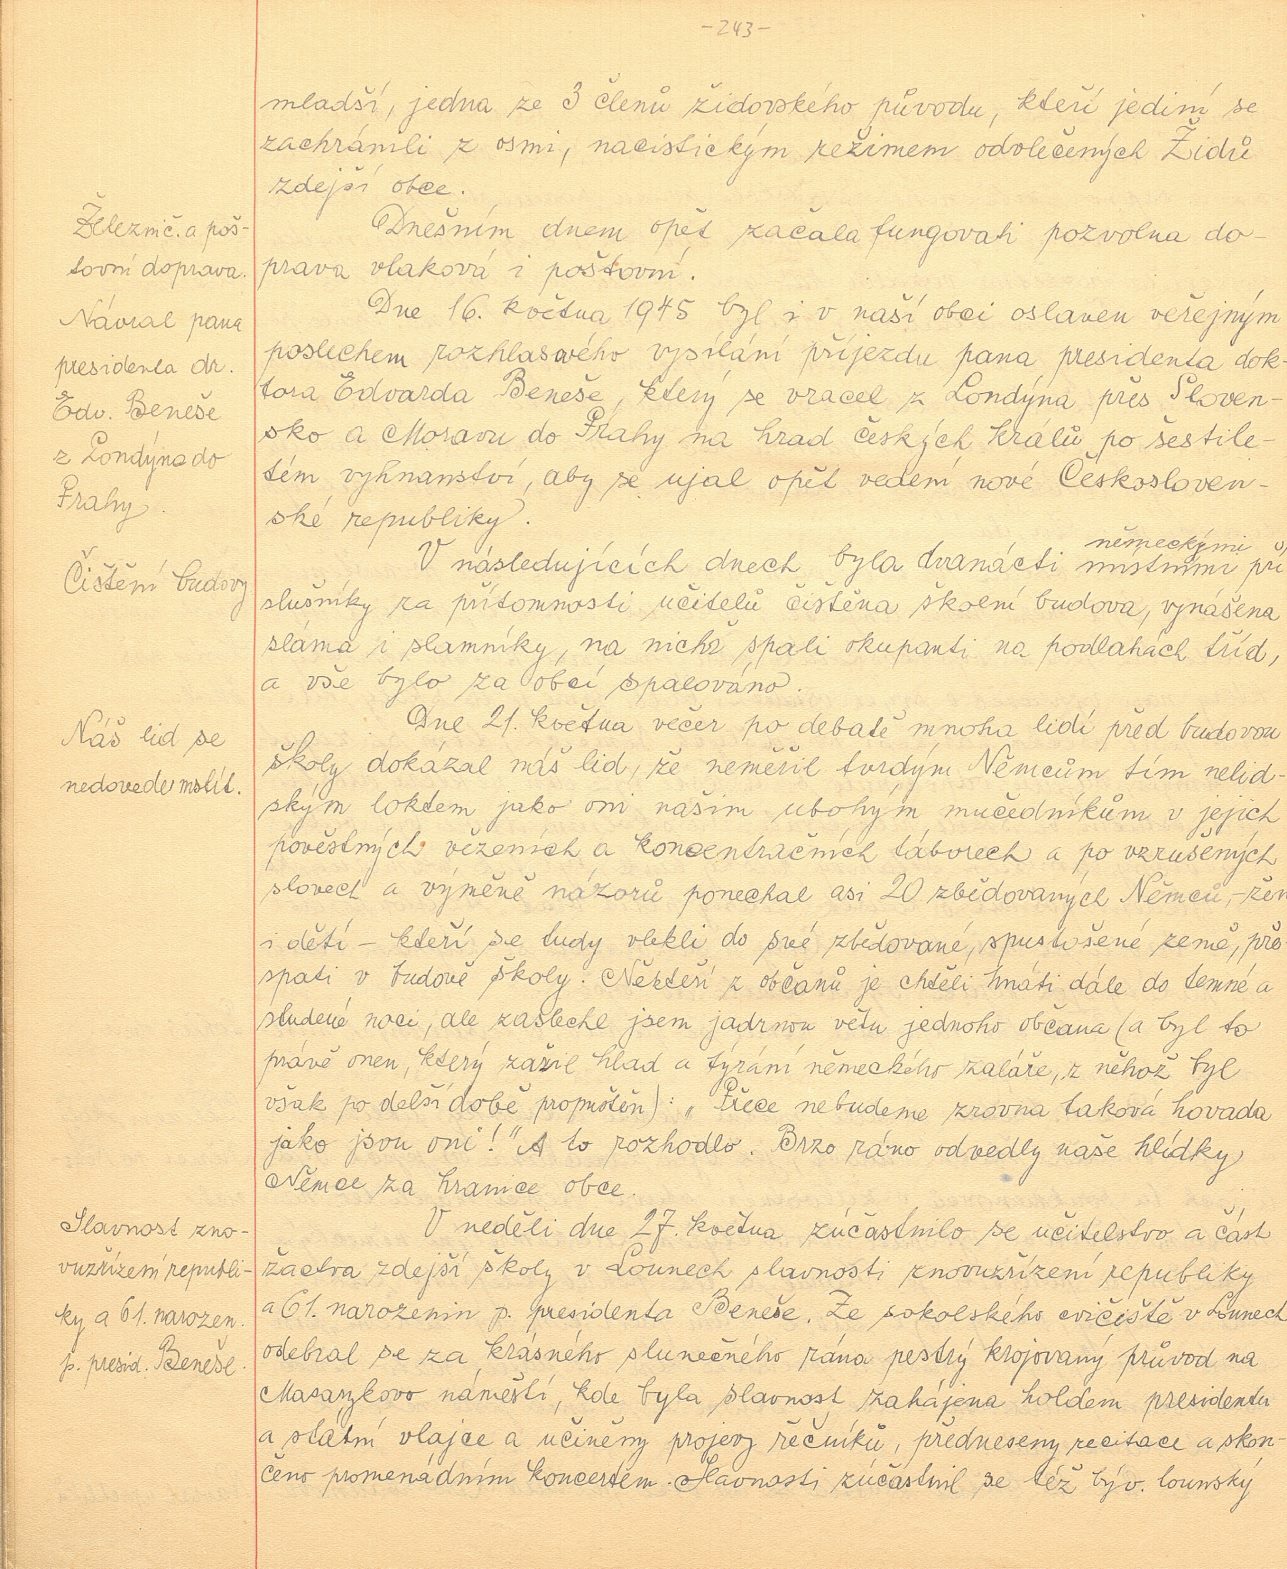 -243-
mladší, jedna ze 3 členů židovského původu, kteří jediní se
zachránili z osmi, nacistickým režimem odvlečených Židů
zdejší obce.
Železnič. a poš-
tovní doprava.
Dnešním dnem opět začala fungovati pozvolna do-
prava vlaková i poštovní.
Návrat pana
presidenta dr.
Edv. Beneše
z Londýna do
Prahy.
Dne 16. května 1945 byl i v naší obci oslaven veřejným
poslechem rozhlasového vysílání příjezdu pana presidenta dok-
tora Edvarda Beneše, který se vracel z Londýna přes Sloven-
sko a Moravu do Prahy na hrad českých králů po šestile-
tém vyhnanství, aby se ujal opět vedení nové Českosloven-
ské republiky.
Čištění budovy
německými
V následujících dnech byla dvanácti místními pří
slušníky za přítomnosti učitelů čištěna školní budova, vynášena
sláma i slamníky, na nichž spali okupanti na podlahách tříd,
a vše bylo za obcí spalováno.
Náš lid se
nedovede mstít.
Dne 21. května večer po debatě mnoha lidí před budovou
školy dokázal náš lid, že neměřil tvrdým Němcům tím nelid-
ským loktem jako oni našim ubohým mučedníkům v jejich
pověstných vězeních a koncentračních táborech a po vzrušených
slovech a výměně názorů ponechal asi 20 zbědovaných Němců, - žen
i dětí - kteří se tudy vlekli do své zbědované, spustošené země, pře
spati v budově školy. Někteří z občanů je chtěli hnáti dále do temné a
studené noci, ale zaslechl jsem jadrnou větu jednoho občana (a byl to
právě onen, který zažil hlad a týrání německého žaláře, z něhož byl
však po delší době propuštěn): „Přece nebudeme zrovna taková hovada
jako jsou oni!" A to rozhodlo. Brzo ráno odvedly naše hlídky
Němce za hranice obce.
Slavnost zno-
vuzřízení republi-
ky a 61. narozen.
p. presid. Beneše.
V neděli dne 27. května zúčastnilo se učitelstvo a část
žactva zdejší školy v Lounech slavnosti znovuzřízení republiky
a 61. narozenin p. presidenta Beneše. Ze sokolského cvičiště v Lounech
odebral se za krásného slunečného rána pestrý krojovaný průvod na
Masarykovo náměstí, kde byla slavnost zahájena holdem presidentu
a státní vlajce a učiněny projevy řečníků, předneseny recitace a skon-
čeno promenádním koncertem. Slavnosti zúčastnil se též býv. lounský